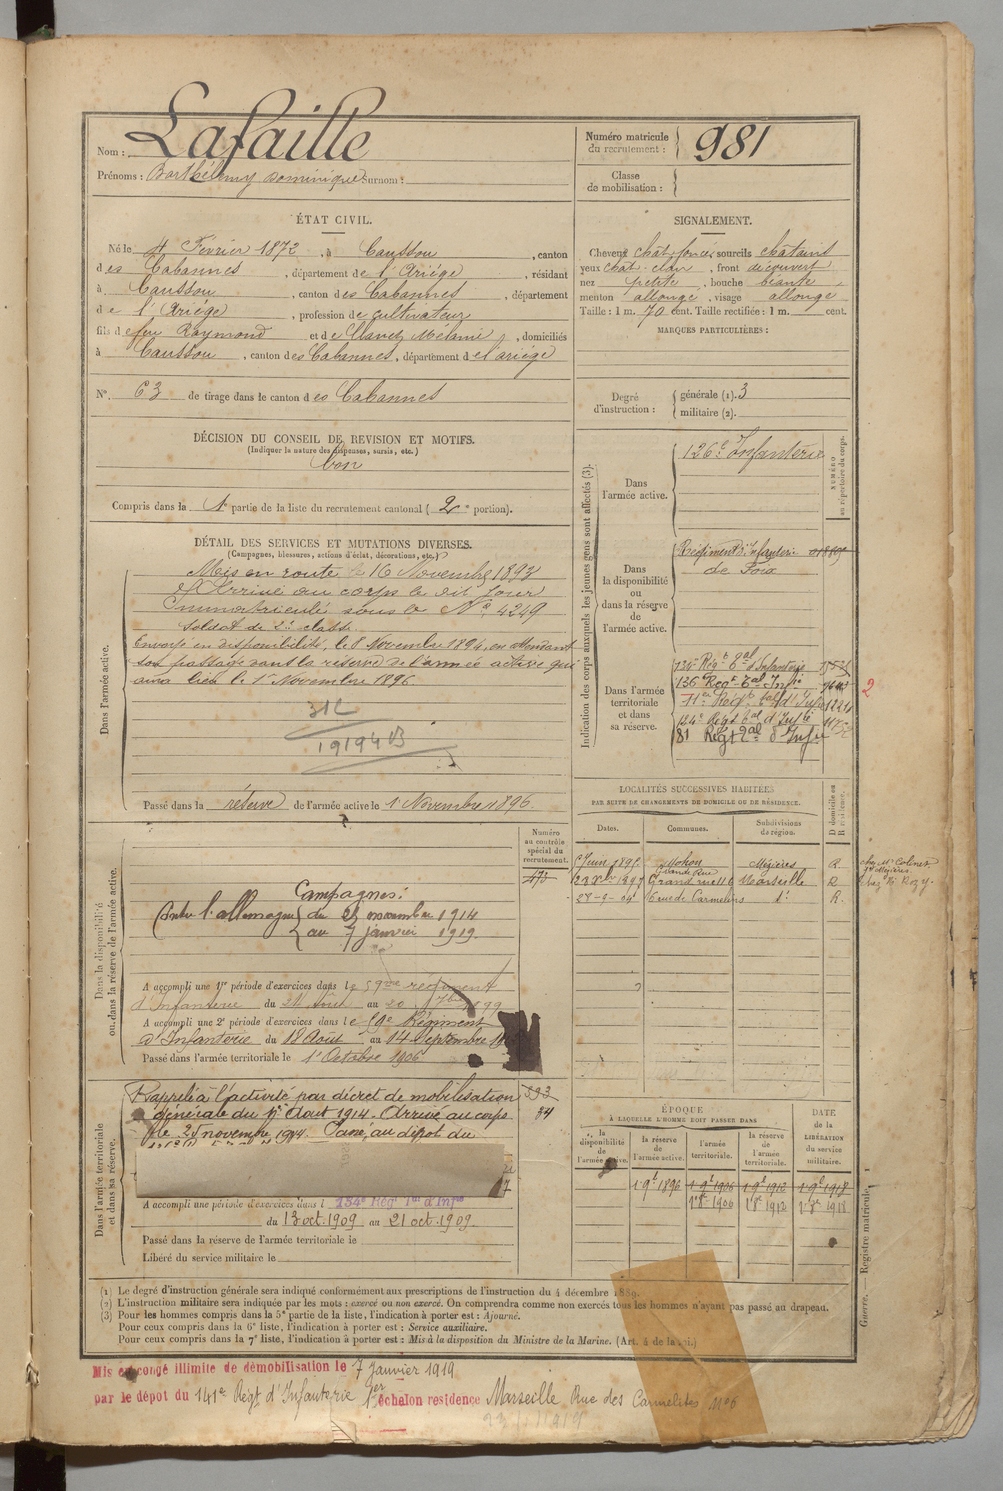 Nom : Lafaille
Prénoms : Barthélemy Dominique Surnom :
Numéro matricule du recrutement : 981
Classe de mobilisation :
ÉTAT CIVIL.
Né le 4 Février 1872, à Caussou, canton
des Cabannes, département de l'Ariége, résidant
à Caussou, canton des Cabannes, département
de l'Ariége, profession de cultivateur
fils de feu Raymond et de Mélanie, domiciliés
à Caussou, canton des Cabannes, département de l'ariége
N° 63 de tirage dans le canton des Cabannes
SIGNALEMENT.
Cheveux chat. foncé, sourcils chatains
yeux chat. clair, front découvert
nez petite, bouche béante,
menton allongé, visage allongé
Taille : 1 m. 70 cent. Taille rectifiée : 1 m. cent.
MARQUES PARTICULIÈRES :
Degré d'instruction : générale (1). 3
militaire (2).
DÉCISION DU CONSEIL DE REVISION ET MOTIFS.
(Indiquer la nature des dispenses, sursis, etc.)
bon
Compris dans la 1e partie de la liste du recrutement cantonal (2e portion).
DÉTAIL DES SERVICES ET MUTATIONS DIVERSES.
(Campagnes, blessures, actions d'éclat, décorations, etc.)
Dans l'armée active.
Mis en route le 16 Novembre 1893
Arrivé au corps le dit jour
Immatriculé sous le N° 4249
Soldat de 2e classe
Envoyé en disponibilité, le 8 Novembre 1894, en attendant
son passage dans la réserve de l'armée active qui
aura lieu le 1er Novembre 1896
312
19194 B
Passé dans la réserve de l'armée active le 1er Novembre 1896.
Indication des corps auxquels les jeunes gens sont affectés (3).
NUMÉRO au répertoire du corps.
Dans l'armée active.
126e Infanterie
Dans la disponibilité ou dans la réserve de l'armée active.
Régiment d'Infanterie
de Foix
Dans l'armée territoriale et dans sa réserve.
134e Régt tal d'Infanterie
136 Regt tal Infie
71e Régt tal d'Infie
124e Régt tal d'Infie
81 Régt tal d'Infie
2
LOCALITÉS SUCCESSIVES HABITÉES
PAR SUITE DE CHANGEMENTS DE DOMICILE OU DE RÉSIDENCE.
Dates. Communes. Subdivisions de région. D domicile ou R résidence.
Mohon Mézières R.
Grande Rue
Grand rue 116 Marseille R
28-9-04 6 rue de Carmelins R.
Dans la disponibilité ou dans la réserve de l'armée active.
Numéro au contrôle spécial du recrutement.
473
Campagnes :
Contre l'allemagne du 25 novembre 1914
au 7 janvier 1919.
A accompli une 1re période d'exercices dans le 59me régiment
d'Infanterie du 24 Août au 20 7bre 1899
A accompli une 2e période d'exercices dans le 59e Régiment
d'Infanterie du 18 Août au 14 Septembre
Passé dans l'armée territoriale le 1er Octobre 1906.
Dans l'armée territoriale et dans sa réserve.
Rappelé à l'activité par décret de mobilisation
générale du 1er Aout 1914. Arrivé au corps
le 25 novembre 1914. Passé au dépôt du
393
34
A accompli une période d'exercices dans l 134e Régt Tal d'Infie
du 13 oct. 1909 au 21 oct. 1909.
Passé dans la réserve de l'armée territoriale le
Libéré du service militaire le
ÉPOQUE
À LAQUELLE L'HOMME DOIT PASSER DANS
la disponibilité de l'armée active.
la réserve de l'armée active.
l'armée territoriale.
la réserve de l'armée territoriale.
DATE de la LIBÉRATION du service militaire.
1 9e 1896 1 9e 1906 1 9e 1912 1 9e 1918
1 8e 1906 1 8e 1912 1 8e 1918
Guerre. — Registre matricule. 1
(1) Le degré d'instruction générale sera indiqué conformément aux prescriptions de l'instruction du 4 décembre 1889.
(2) L'instruction militaire sera indiquée par les mots : exercé ou non exercé. On comprendra comme non exercés tous les hommes n'ayant pas passé au drapeau.
(3) Pour les hommes compris dans la 5e partie de la liste, l'indication à porter est : Ajourné.
Pour ceux compris dans la 6e liste, l'indication à porter est : Service auxiliaire.
Pour ceux compris dans la 7e liste, l'indication à porter est : Mis à la disposition du Ministre de la Marine. (Art. 4 de la loi.)
Mis en congé illimité de démobilisation le 7 Janvier 1919
par le dépôt du 141e Régt d'Infanterie 1er échelon residence Marseille Rue des Carmelites N°6